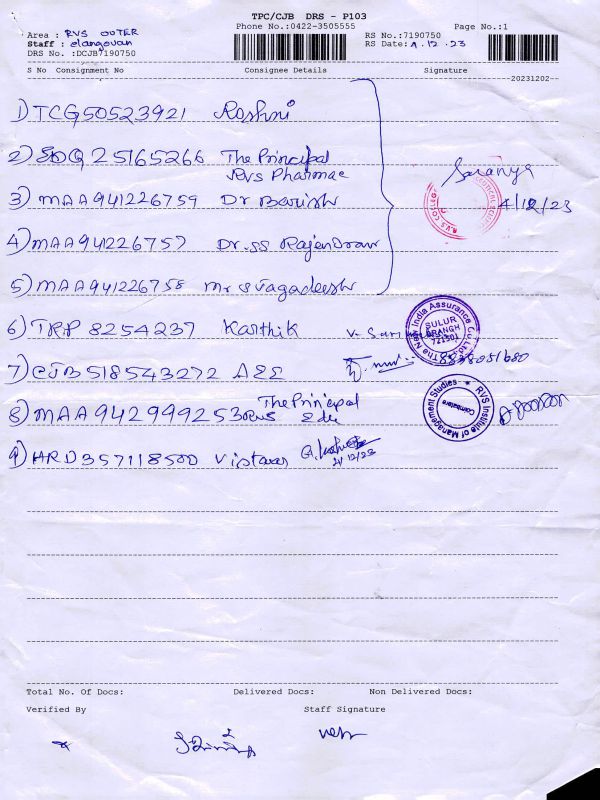 TPC/CJB DRS - P103
Phone No.:0422-3505555
Page No.:1
Area : RVS OUTER
RS No.:7190750
Staff : elangovan
RS Date: 4.12.23
DRS No. :DCJB7190750
S No Consignment No Consignee Details Signature
20231202
1) TCG50523921 Roshni
2) EDQ 25165266 The Principal
RVS Pharmac
Saranya
3) MAA941226759 Dr Barish
4/12/23
RVS COLLEGE
4) MAA941226757 Dr. SS Rajendran
5) MAA941226758 Mr S Jagadeesh
6) TRP 8254237 Karthik
The New India Assurance Co. Ltd
SULUR BRANCH 721501
7) CJB518543272 AEE
8) MAA942999253 The Principal
RVS Edu
RVS Institute of Management Studies
Coimbatore
9) HRD357118500 Vistaras
4/12/23
Total No. Of Docs: Delivered Docs: Non Delivered Docs:
Verified By Staff Signature